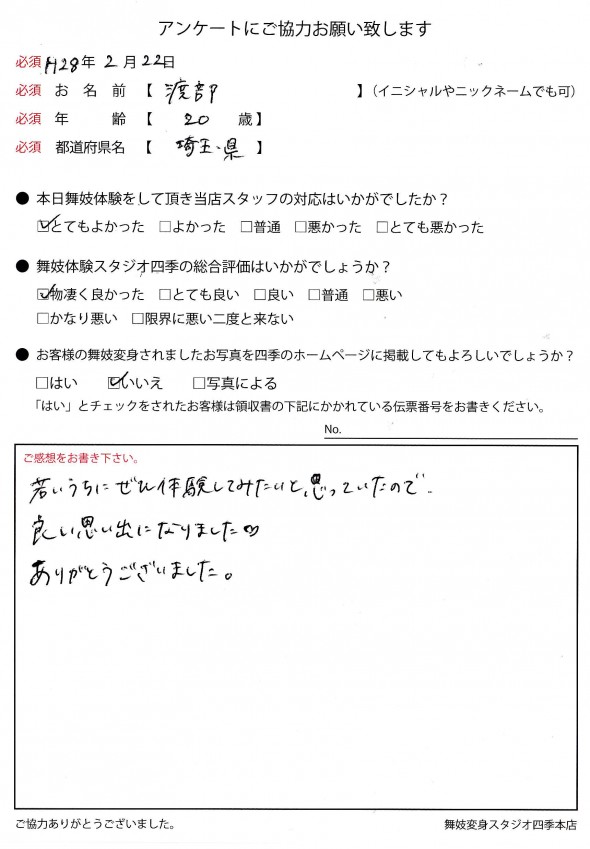 アンケートにご協力お願い致します
必須 H28年 2月 22日
必須 お 名 前 【 渡部 】（イニシャルやニックネームでも可）
必須 年 齢 【 20 歳】
必須 都道府県名 【 埼玉県 】
● 本日舞妓体験をして頂き当店スタッフの対応はいかがでしたか？
☑とてもよかった □よかった □普通 □悪かった □とても悪かった
● 舞妓体験スタジオ四季の総合評価はいかがでしょうか？
☑物凄く良かった □とても良い □良い □普通 □悪い
□かなり悪い □限界に悪い二度と来ない
● お客様の舞妓変身されましたお写真を四季のホームページに掲載してもよろしいでしょうか？
□はい ☑いいえ □写真による
「はい」とチェックをされたお客様は領収書の下記にかかれている伝票番号をお書きください。
No.
ご感想をお書き下さい。
若いうちにぜひ体験してみたいと思っていたので、
良い思い出になりました♡
ありがとうございました。
ご協力ありがとうございました。 舞妓変身スタジオ四季本店